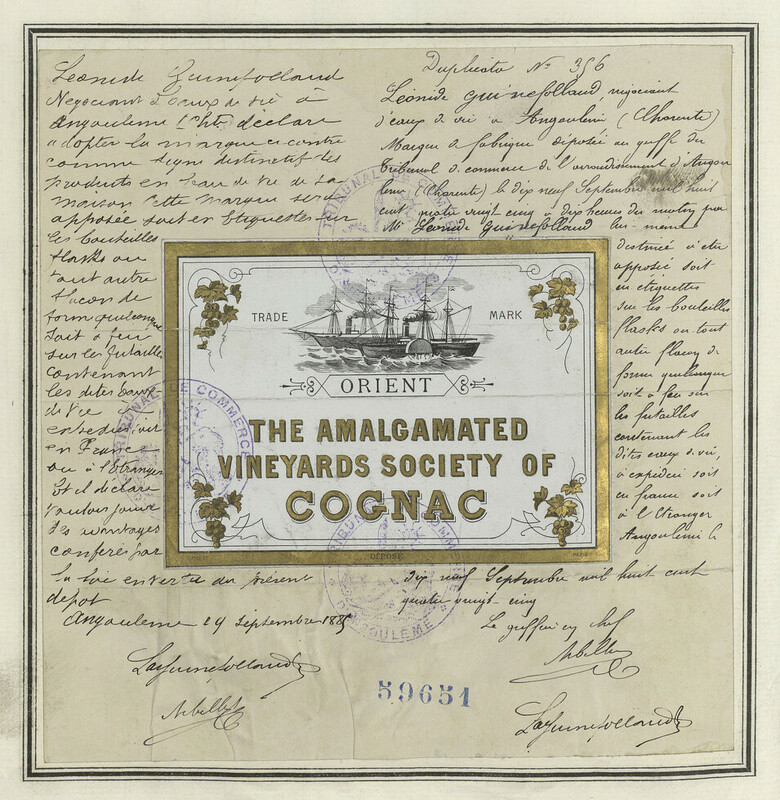 Léonide Guinefolleaud
Négociant d'Eaux de vie à
Angoulême (Chte) déclare
adopter la marque ci contre
comme signe distinctif des
produits en eau de vie de sa
maison Cette marque sera
apposée soit en Etiquettes sur
les bouteilles
flasks ou
tout autre
flacon de
forme quelconque
soit à feu
sur les futailles
contenant
les dites eaux
de vie
expédier
en France
ou à l'Etranger
Et il déclare
vouloir jouir
des avantages
conférés par
la loi en vertu du présent
dépot
Angoulême 19 Septembre 1885
Duplicata No 356
Léonide Guinefolleaud, négociant
d'eaux de vie à Angoulême (Charente)
Marque de fabrique déposée au greffe du
Tribunal de commerce de l'arrondissement d'Angou
lême (Charente) le dix neuf Septembre mil huit
cent quatre vingt cinq à dix heures du matin par
Mr Léonide Guinefolleaud lui-même
destinée à être
apposée soit
en étiquettes
sur les bouteilles
flasks ou tout
autre flacon de
forme quelconque
soit à feu sur
les futailles
contenant les
dites eaux de vie,
à expédier soit
en france soit
à l'Etranger
Angoulême le
dix neuf Septembre mil huit cent
quatre vingt cinq
Le greffier en chef
TRADE MARK
ORIENT
THE AMALGAMATED
VINEYARDS SOCIETY OF
COGNAC
DÉPOSÉ
TRIBUNAL DE COMMERCE
TRIBUNAL DE COMMERCE
TRIBUNAL DE COMMERCE
D'ANGOULÊME
59651